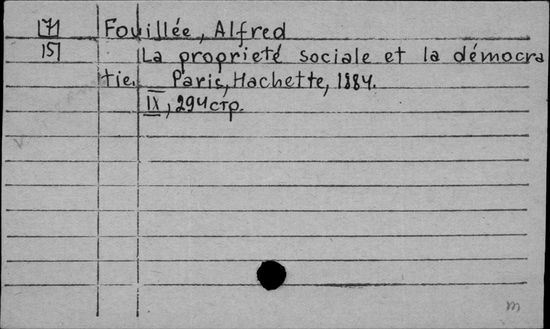 171 Fouillée, Alfred
151 La proprieté sociale et la démocra
tie. _ Paris, Hachette, 1884.
IX, 294стр.
m